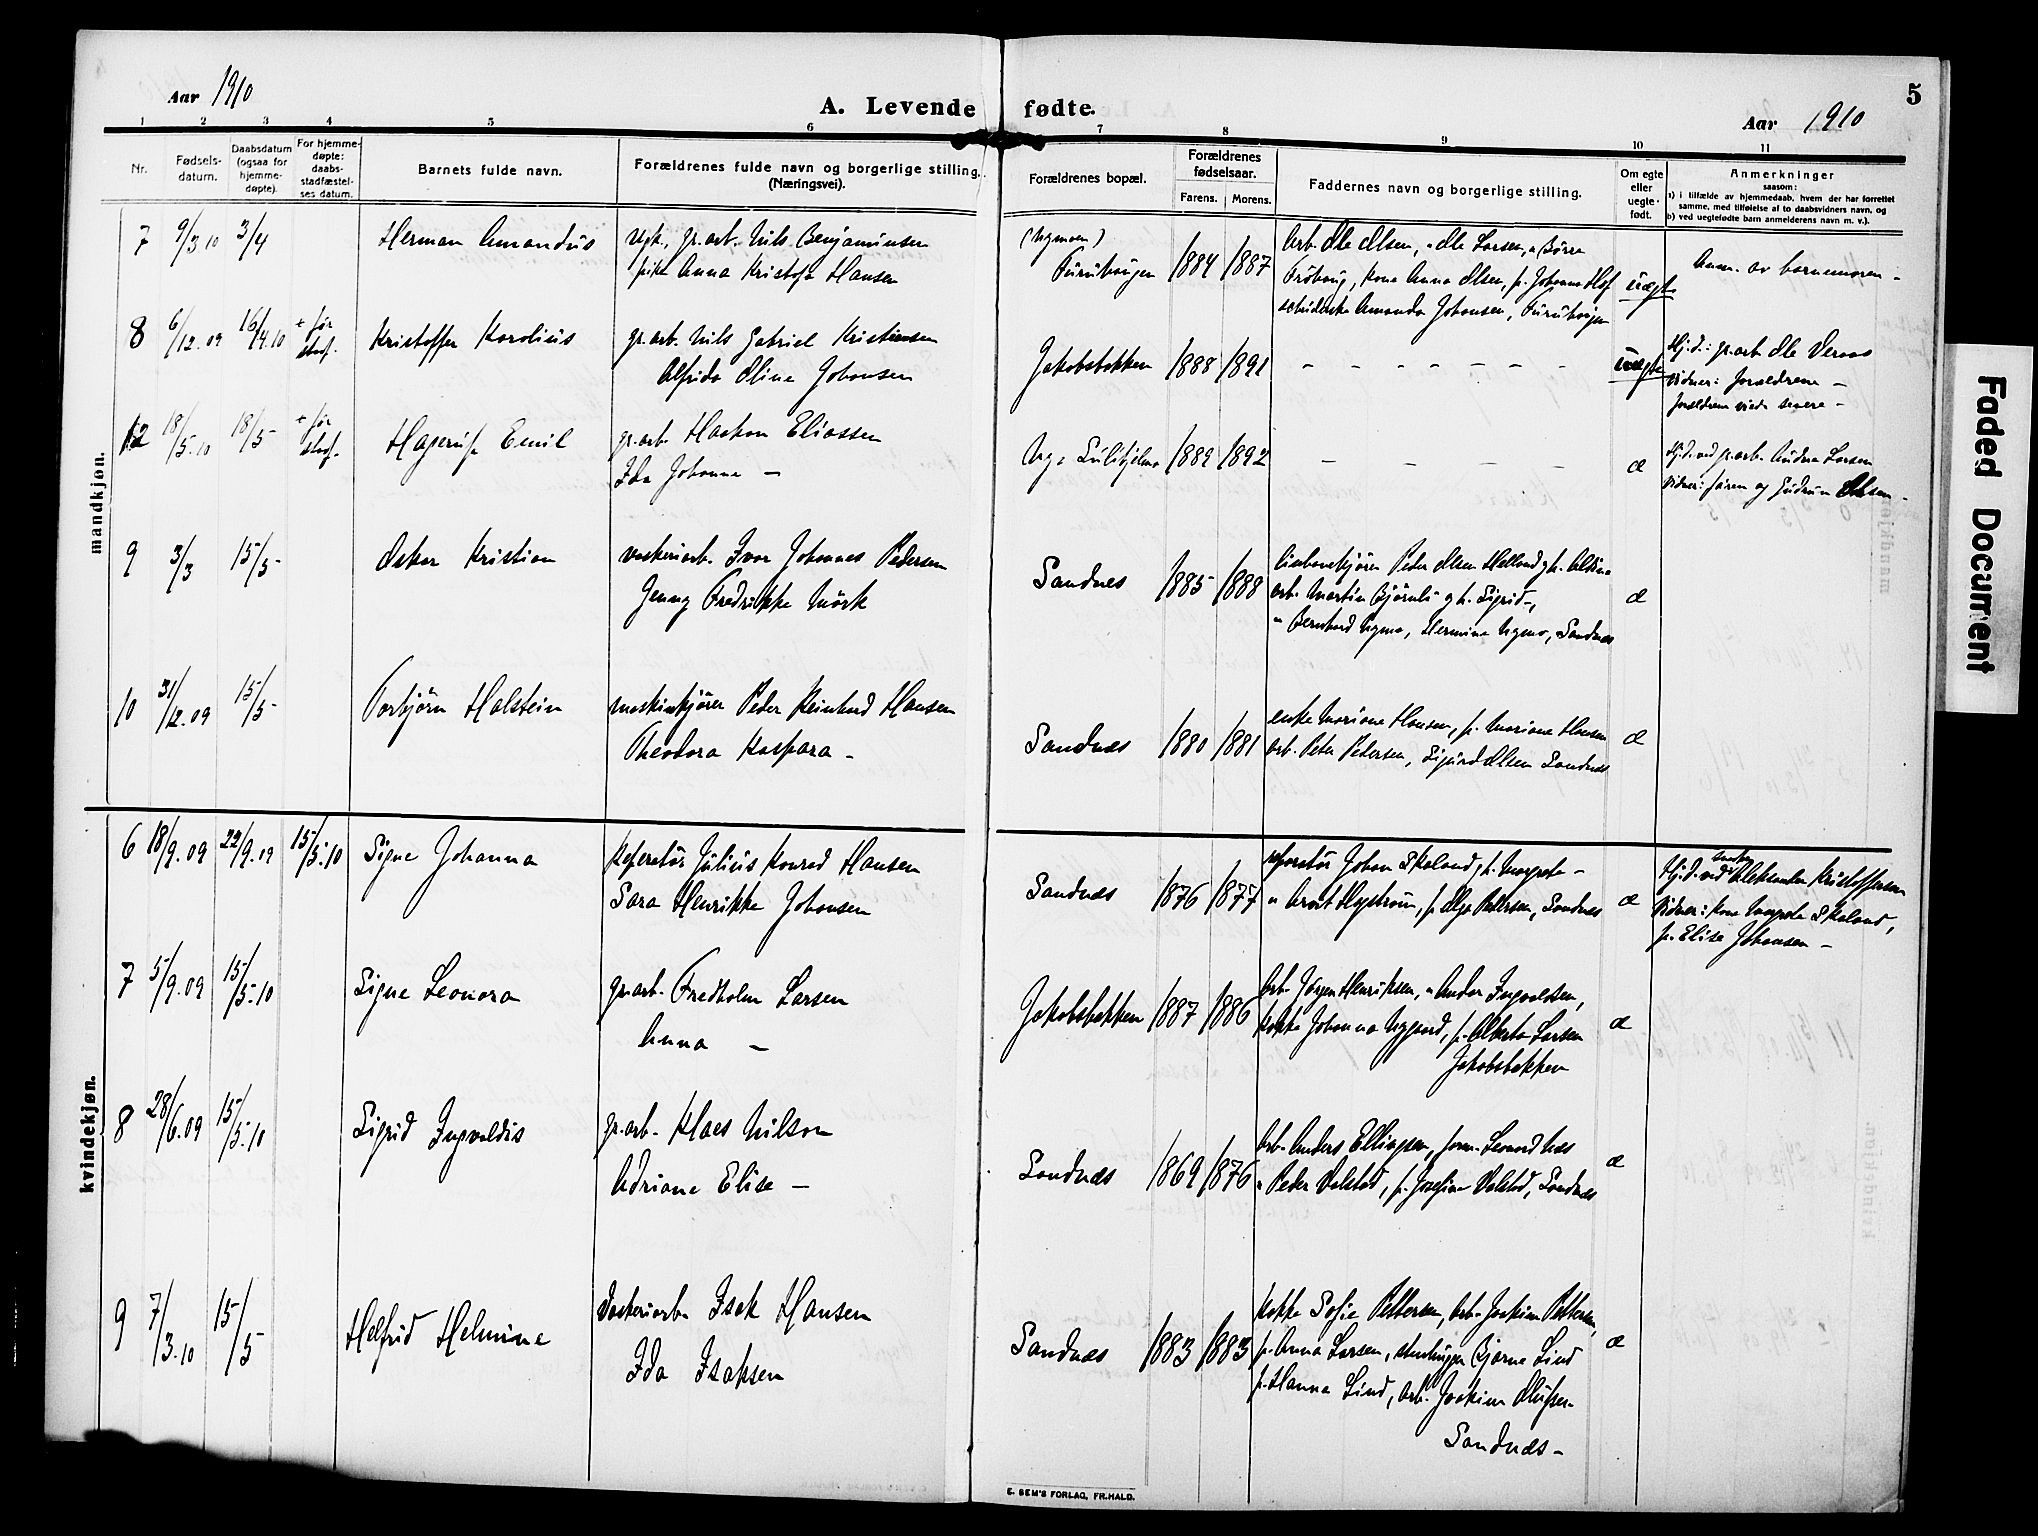 Aar 1910
A. Levende fødte.
Aar 1910
5
1 2 3 4 5 6 7 8 9 10 11
Nr.
Fødsels-
datum.
Daabsdatum
(ogsaa for
hjemme-
døpte).
For hjemme-
døpte:
daabs-
stadfæstel-
ses datum.
Barnets fulde navn.
Forældrenes fulde navn og borgerlige stilling.
(Næringsvei).
Forældrenes bopæl.
Forældrenes
fødselsaar.
Farens. Morens.
Faddernes navn og borgerlige stilling.
Om egte
eller
uegte-
født.
Anmerkninger
saasom:
a) i tilfælde av hjemmedaab, hvem der har forrettet
samme, med tilføielse af to daabsvidners navn, og
b) ved uegtefødte barn anmelderens navn m. v.).
mandkjøn.
7 9/3 10 3/4 Herman Amandus
gr.arb. Nils Benjaminsen
pike Anna Kristofa Hansen
(Nymoen)
Furuhaugen 1884 1887
Arb. Ole Olsen, " Ole Larsen, " Børre
Kone Anna Olsen, p. Johanna
Amanda Johansen, Furuhaugen
uægte
Anm. av barnemoren -
8 6/12.09 16/4.10 + før
stadf.
Kristoffer Karolius
gr.arb. Nils Gabriel Kristiansen
Alfrida Oline Johansen
Jakobsbakken 1888 1891
- - - - - - -
uægte
Hj.d.: gr.arb. Ole Veraas
Vidner: forældrene -
forældrene viede senere -
12 18/5.10 18/5 - + før
stadf.
Hagerup Emil
gr.arb. Haakon Eliassen
Ida Johanna -
Ny-Sulitjelma 1889 1892
- - - -
æ
Hj.d. ved gr.arb. Andrea Larsen
Vidner: faren og Gudrun Olsen -
9 3/3 15/5 - Oskar Kristian
vaskeriarb. Ivar Johannes Pedersen
Jenny Fredrikke Mörk
Sandnes 1885 1888
Peder Olsen Helland g h.
arb. Martin Bjørnli g h. Sigrid -,
" Bernhard Nymo, Hermine Nymo, Sandnes
æ
10 31/12.09 15/5 - Torbjørn Halstein
maskinkjører Peder Reinhard Hansen
Theodora Kaspara -
Sandnæs 1880 1881
enke Mariane Hansen, p. Mariane Hansen
arb. Peter Pedersen, Sigurd Olsen Sandnæs
æ
kvindekjøn.
6 18/9.09 22/9.09 15/5.10 Signe Johanna
Reperatør Julius Konrad Hansen
Sara Henrikke Johansen
Sandnæs 1876 1877
reparatør Johan Skaland g h. Margrete -
" Arnt Nystrøm, p. Olga Pettersen, Sandnes
æ
Hj.d. ved Aleksander Kristoffersen
Vidner: Kone Margrete Skaland,
p. Elise Johansen -
7 5/9.09 15/5.10 Signe Leonora
gr.arb. Fredholm Larsen
Anna -
Jakobsbakken 1887 1886
Arb. Jørgen Henriksen, " Andor Ingvaldsen,
Kokke Johanna Nygaard, p. Alberta Larsen
Jakobsbakken
æ
8 28/6.09 15/5.10 Sigrid Ingvaldis
gr.arb. Klaes Nilson
Adriane Elise -
Sandnæs 1869 1876
Arb. Anders Ellingsen, form. Leonard Næs
" Peder Valstad, p. Josefine Valstad, Sandnæs
æ
9 7/3.10 15/5 Helfrid Helmine
Vaskeriarb. Isak Hansen
Ida Isaksen
Sandnæs 1883 1883
Kokke Sofie Pettersen, Arb. Joakim Pettersen,
p. Anna Larsen, Bjarne Lind
p. Hanna Lind, arb. Joakim Olufsen
Sandnæs -
æ
E. SEM'S FORLAG, FR.HALD.
Faded Document